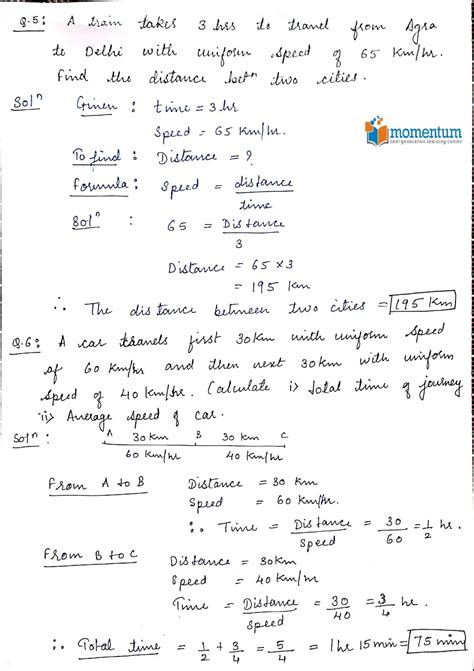 Q.5: A train takes 3 hrs to travel from Agra
to Delhi with uniform speed of 65 km/hr.
Find the distance betⁿ two cities.
Solⁿ Given : time = 3 hr
Speed = 65 km/hr.
momentum
next generation learning center
To find : Distance = ?
Formula : Speed = distance/time
Solⁿ : 65 = Distance/3
Distance = 65 × 3
= 195 km
∴ The distance between two cities = 195 km
Q.6: A car travels first 30 km with uniform speed
of 60 km/hr and then next 30 km with uniform
speed of 40 km/hr. Calculate i) total time of journey
ii) Average speed of car.
Solⁿ : A 30 km B 30 km C
60 km/hr 40 km/hr
From A to B Distance = 30 km
Speed = 60 km/hr.
∴ Time = Distance/Speed = 30/60 = 1/2 hr.
From B to C Distance = 30 km
Speed = 40 km/hr
Time = Distance/Speed = 30/40 = 3/4 hr.
∴ Total time = 1/2 + 3/4 = 5/4 = 1 hr 15 min = 75 min